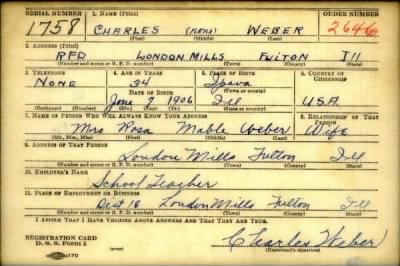 SERIAL NUMBER 1. NAME (Print) ORDER NUMBER
1758 CHARLES (none) WEBER
(First) (Middle) (Last)
2. ADDRESS (Print)
RFD LONDON MILLS FULTON Ill
(Number and street or R. F. D. number) (Town) (County) (State)
3. TELEPHONE 4. AGE IN YEARS 5. PLACE OF BIRTH 6. COUNTRY OF CITIZENSHIP
NONE 34 Ipava
DATE OF BIRTH (Town or county)
June 7 1906 Ill U.S.A.
(Exchange) (Number) (Mo.) (Day) (Yr.) (State or country)
7. NAME OF PERSON WHO WILL ALWAYS KNOW YOUR ADDRESS 8. RELATIONSHIP OF THAT PERSON
Mrs Rosa Mable Weber Wife
(Mr., Mrs., Miss) (First) (Middle) (Last)
9. ADDRESS OF THAT PERSON
London Mills Fulton Ill
(Number and street or R. F. D. number) (Town) (County) (State)
10. EMPLOYER'S NAME
School Teacher
11. PLACE OF EMPLOYMENT OR BUSINESS
Dist 16 London Mills Fulton Ill
(Number and street or R. F. D. number) (Town) (County) (State)
I AFFIRM THAT I HAVE VERIFIED ABOVE ANSWERS AND THAT THEY ARE TRUE.
REGISTRATION CARD
D. S. S. Form 1 Charles Weber
(Registrant's signature)